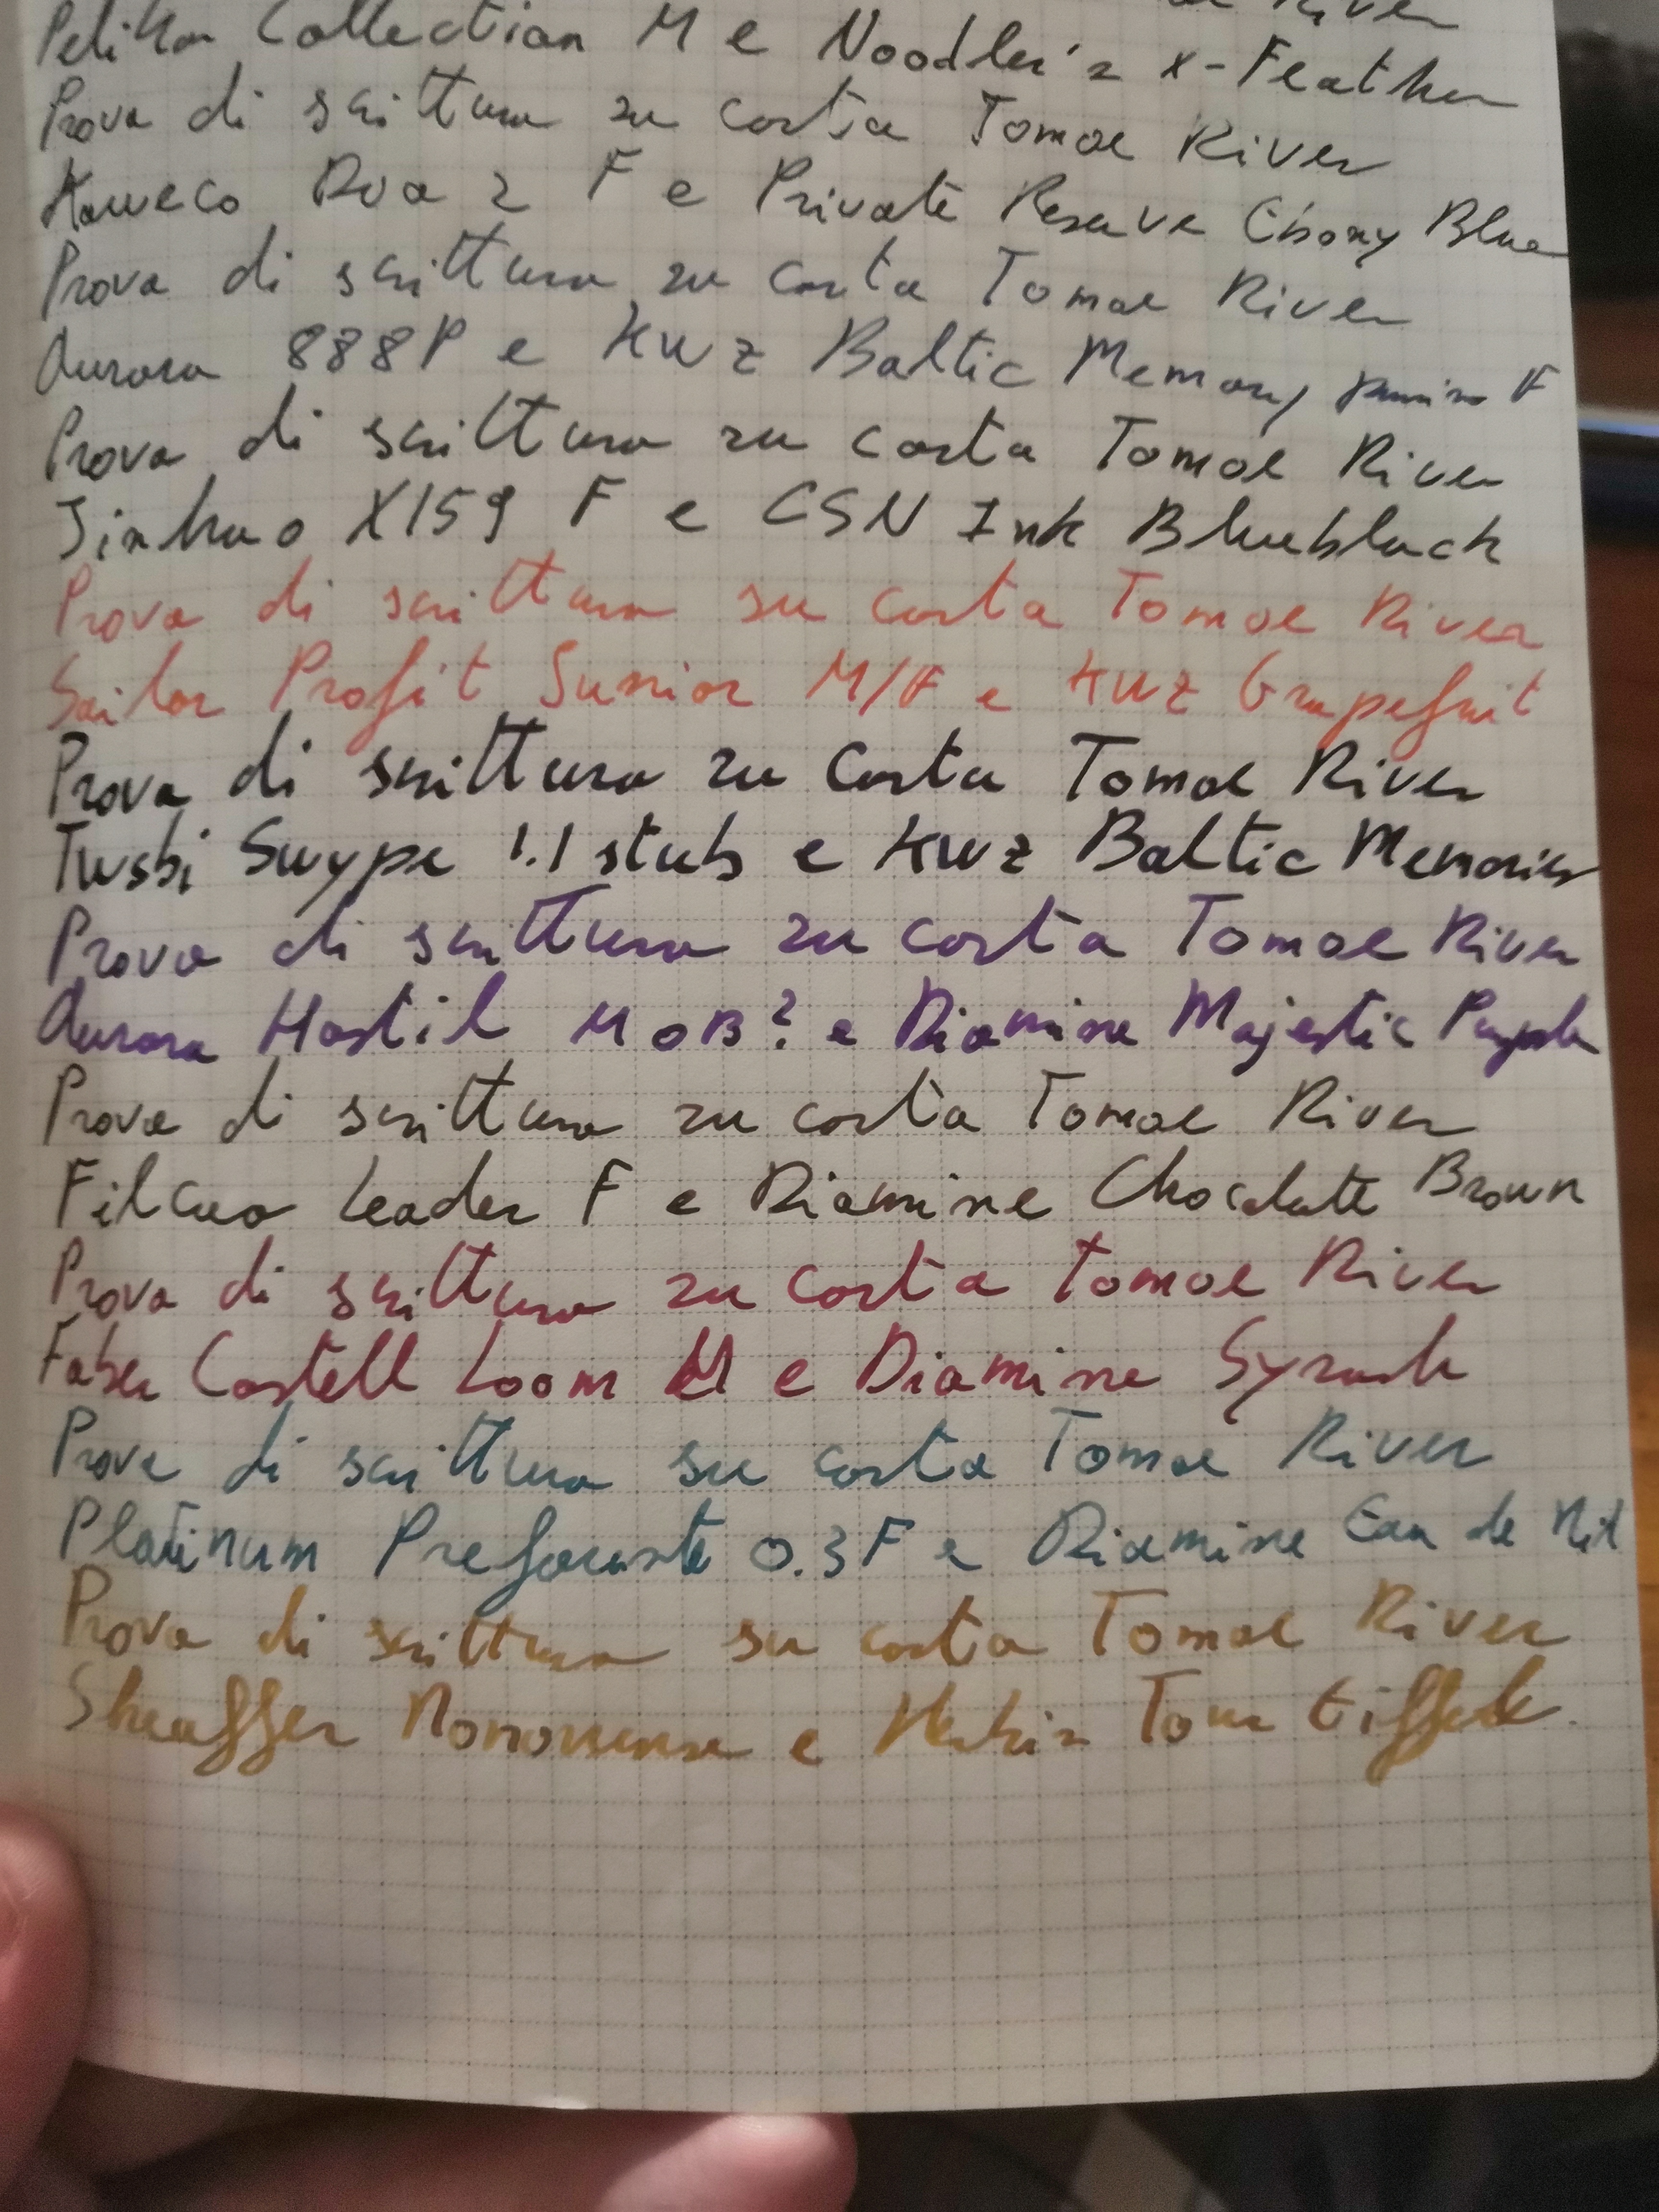 River
Pelikan Collection M e Noodler's x-Feather
Prova di scrittura su carta Tomoe River
Kaweco Dia 2 F e Private Reserve Ebony Blue
Prova di scrittura su carta Tomoe River
Aurora 888P e KWZ Baltic Memory F
Prova di scrittura su carta Tomoe River
Jinhao X159 F e CSN Ink Blueblack
Prova di scrittura su carta Tomoe River
Sailor Profit Junior M/F e KWZ Grapefruit
Prova di scrittura su carta Tomoe River
Twsbi Swype 1.1 stub e KWZ Baltic Memories
Prova di scrittura su carta Tomoe River
Aurora Hastil M o B? e Diamine Majestic Purple
Prova di scrittura su carta Tomoe River
Filcao Leader F e Diamine Chocolate Brown
Prova di scrittura su carta Tomoe River
Faber Castell Loom M e Diamine Syrah
Prova di scrittura su carta Tomoe River
Platinum Prefounte 0.3 F e Diamine Eau de Nil
Prova di scrittura su carta Tomoe River
Sheaffer e Herbin Tour Eiffel